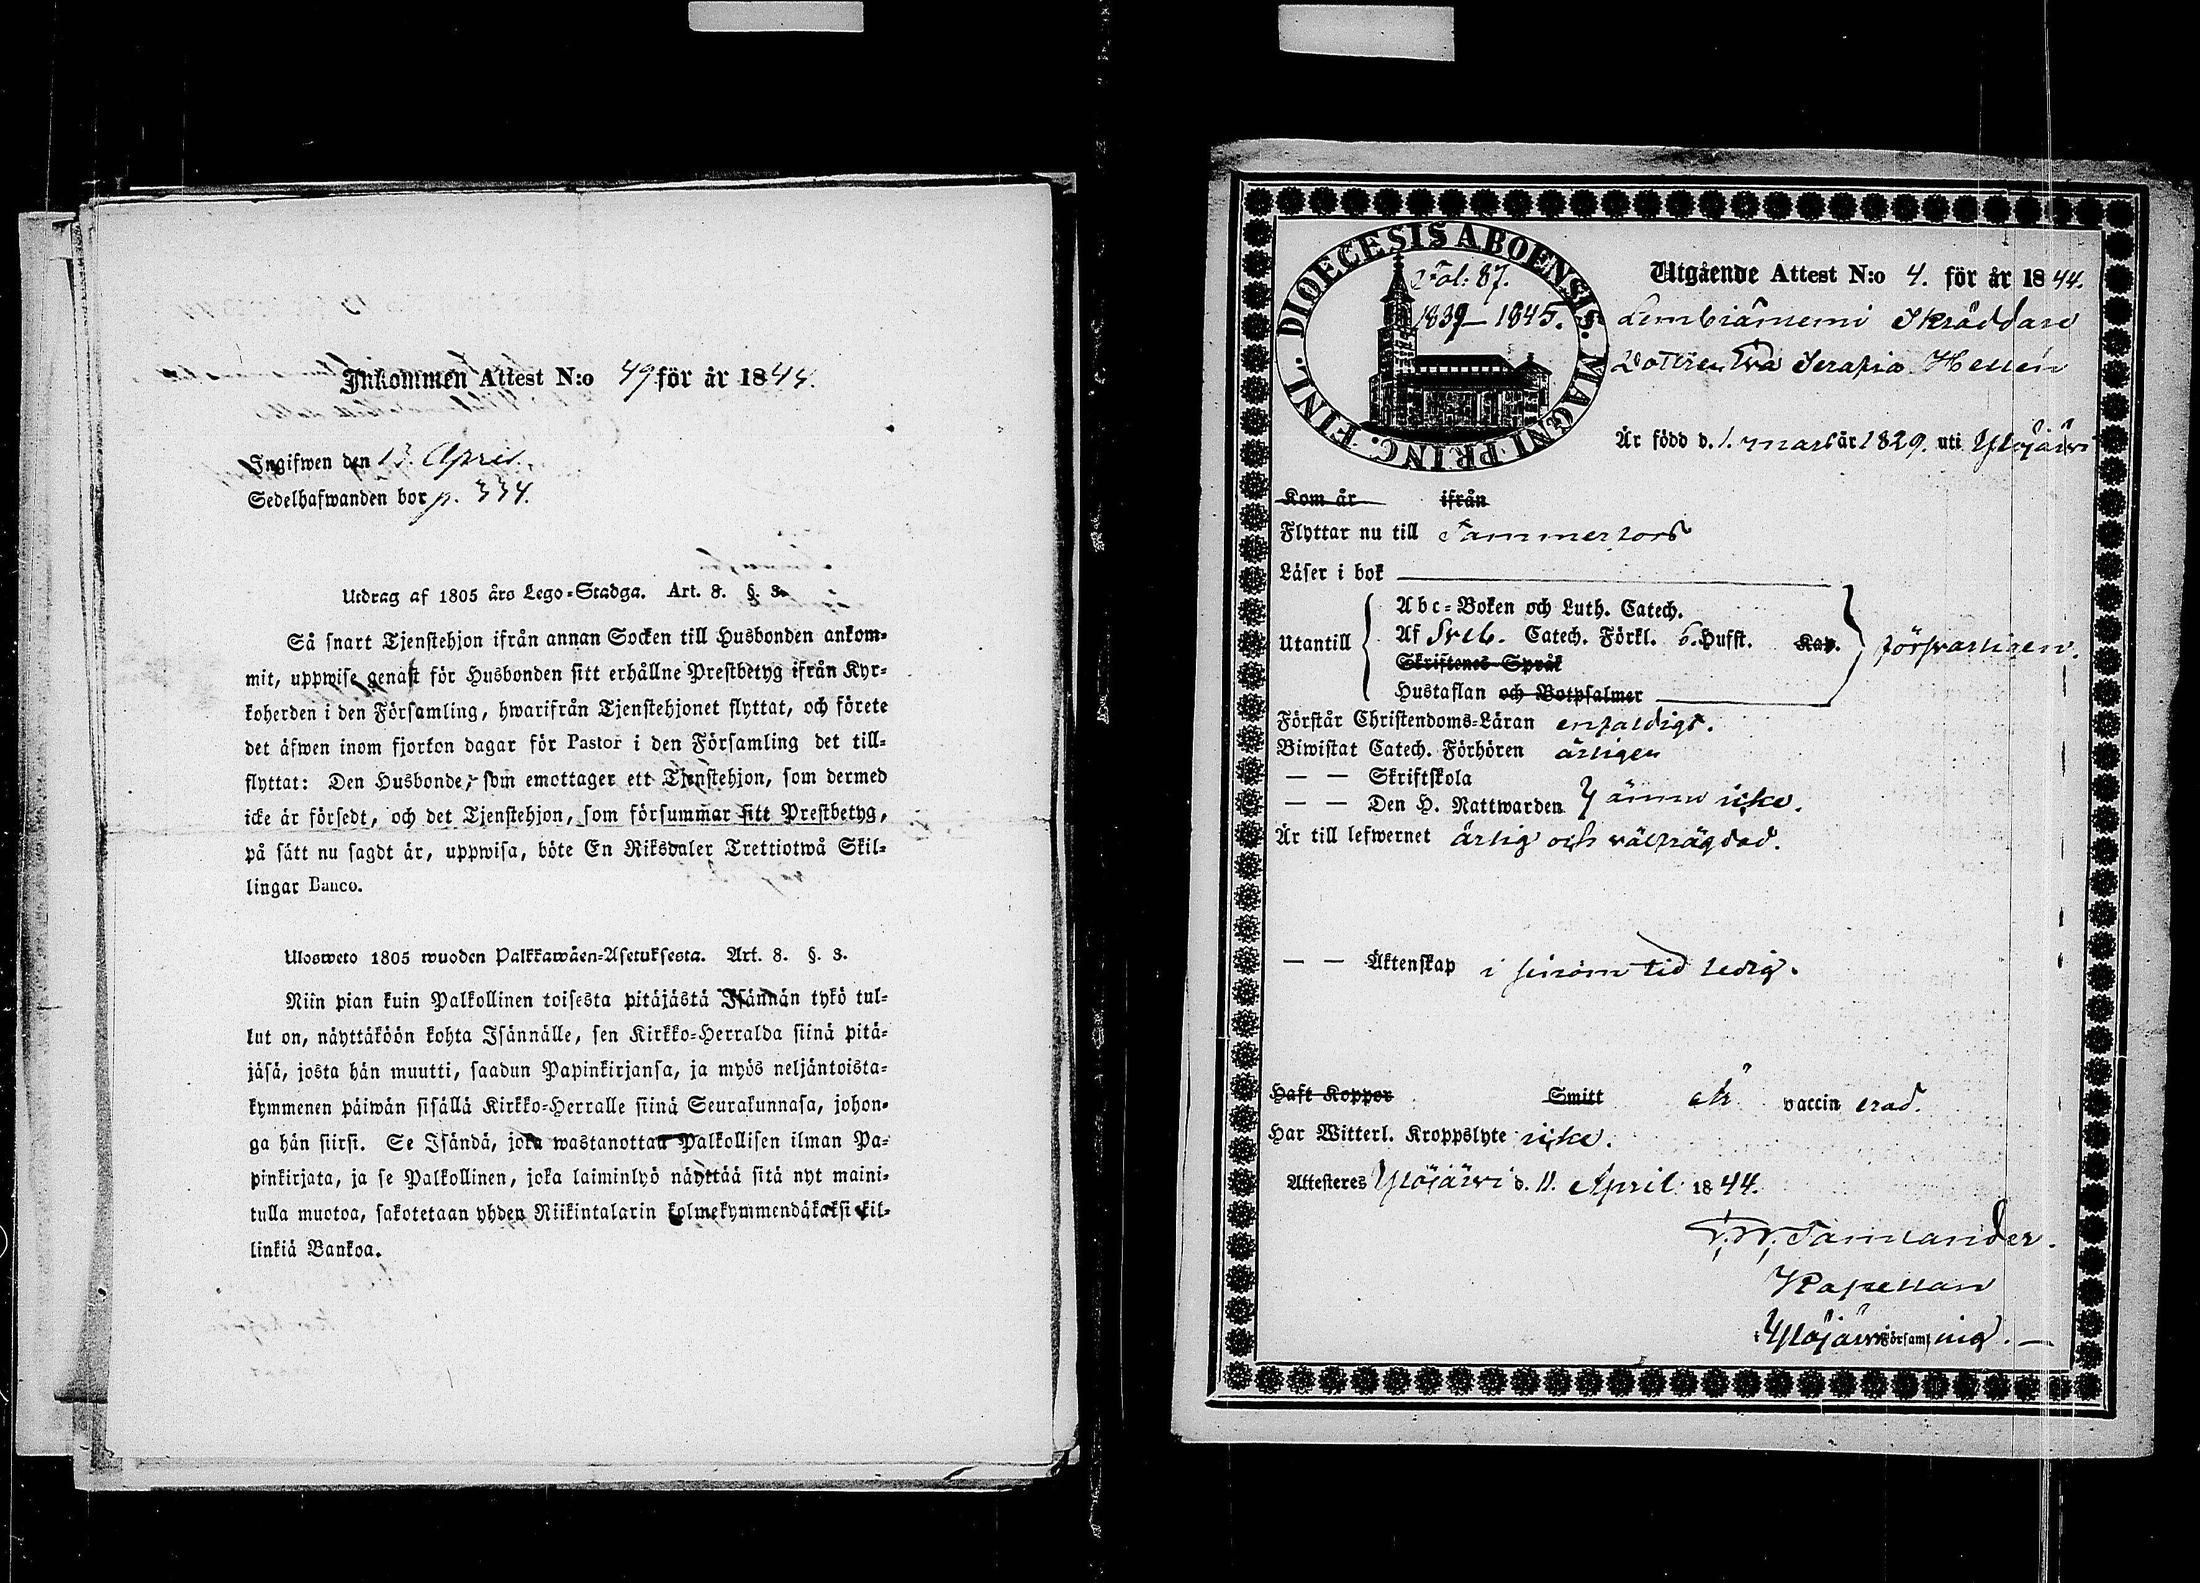 Inkommen Attest N:o 49 för år 1844.
Ingifwen den 13. April.
Sedelhafwanden bor p. 334.
Utdrag af 1805 års Lego-Stadga. Art. 8. §. 3.
Så snart Tjenstehjon ifrån annan Socken till Husbonden ankom-
mit, uppwise genast för Husbonden sitt erhållne Prestbetyg ifrån Kyr-
koherden i den Församling, hwarifrån Tjenstehjonet flyttat, och förete
det äfwen inom fjorton dagar för Pastor i den Församling det till-
flyttat: Den Husbonde, som emottager ett Tjenstehjon, som dermed
icke är försedt, och det Tjenstehjon, som försummar sitt Prestbetyg,
på sätt nu sagdt är, uppwisa, böte En Riksdaler Trettiotwå Skil-
lingar Banco.
Ulosweto 1805 wuoden Palkkawäen-Asetuksesta. Art. 8. §. 3.
Niin pian kuin Palkollinen toisesta pitäjästä Isännän tykö tul-
lut on, näyttäköön kohta Isännälle, sen Kirkko-Herralda siinä pitä-
jäsä, josta hän muutti, saadun Papinkirjansa, ja myös neljäntoista-
kymmenen päiwän sisällä Kirkko-Herralle siinä Seurakunnasa, johon-
ga hän siirsi. Se Isändä, joka wastanottaa Palkollisen ilman Pa-
pinkirjata, ja se Palkollinen, joka laiminlyö näyttää sitä nyt maini-
tulla muotoa, sakotetaan yhden Riikintalarin kolmekymmendäkaksi kil-
linkiä Bankoa.
DIOECESIS ABOENSIS. MAGNI PRINC. FINL.
Fol: 87.
1839–1845.
Utgående Attest N:o 4. för år 1844.
Lembiäniemi Skräddare
Dottren Eva Serafia Hellén
Är född d. 1. mars år 1829. uti Ylöjärvi
Kom år ifrån
Flyttar nu till Tammerfors
Läser i bok
Utantill
Abc-Boken och Luth. Catech.
Af Sveb. Catech. Förkl. 6. Hufst. Kap.
Skriftenes Språk
Hustaflan och Botpsalmer
försvarligen.
Förstår Christendoms-Läran enfaldigt.
Biwistat Catech. Förhören årligen
— — Skriftskola
— — Den H. Nattwarden } ännu icke.
Är till lefwernet ärlig och välfrägdad.
— — Äktenskap i sinom tid ledig.
Haft Koppor Smitt är vaccinerad.
Har Witterl. Kroppslyte icke.
Attesteres Ylöjärvi d. 11. April 1844.
Tannlander.
Kapellan
i Ylöjärvi Församlning.